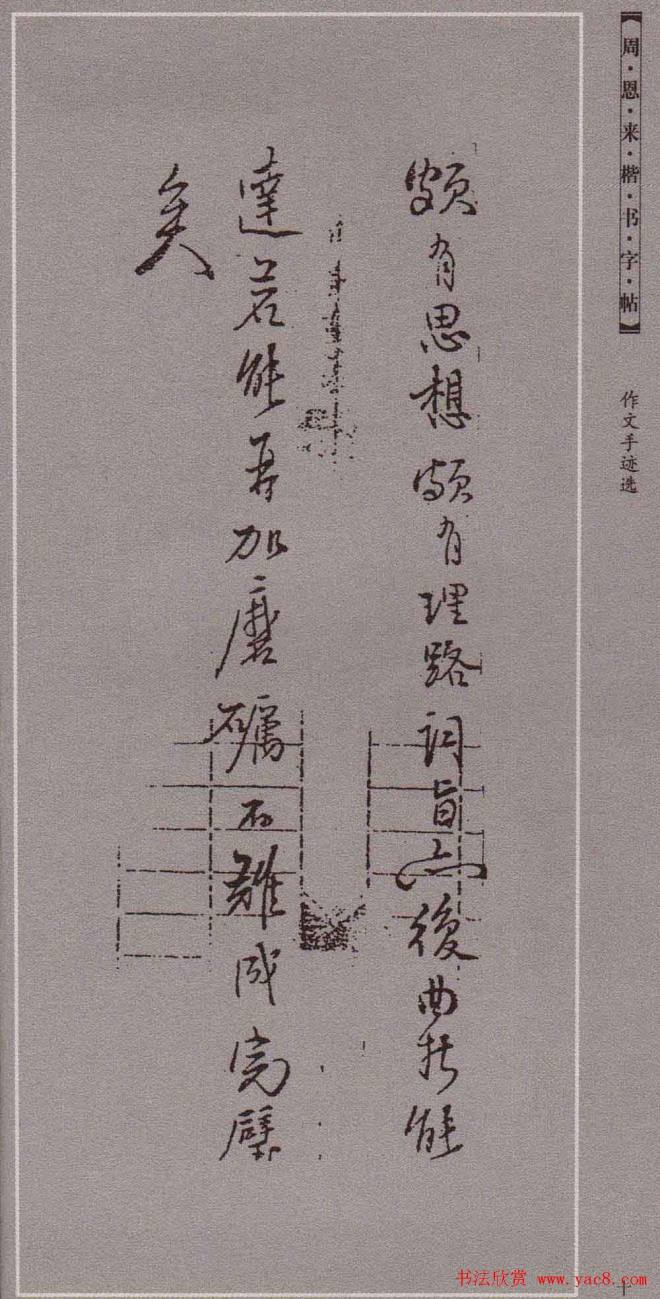 【周·恩·来·楷·书·字·帖】
作文手迹选
頗有思想頗有理路詞旨亦復曲折能
達若能再加磨礪不難成完璧
矣
十
书法欣赏 www.yac8.com